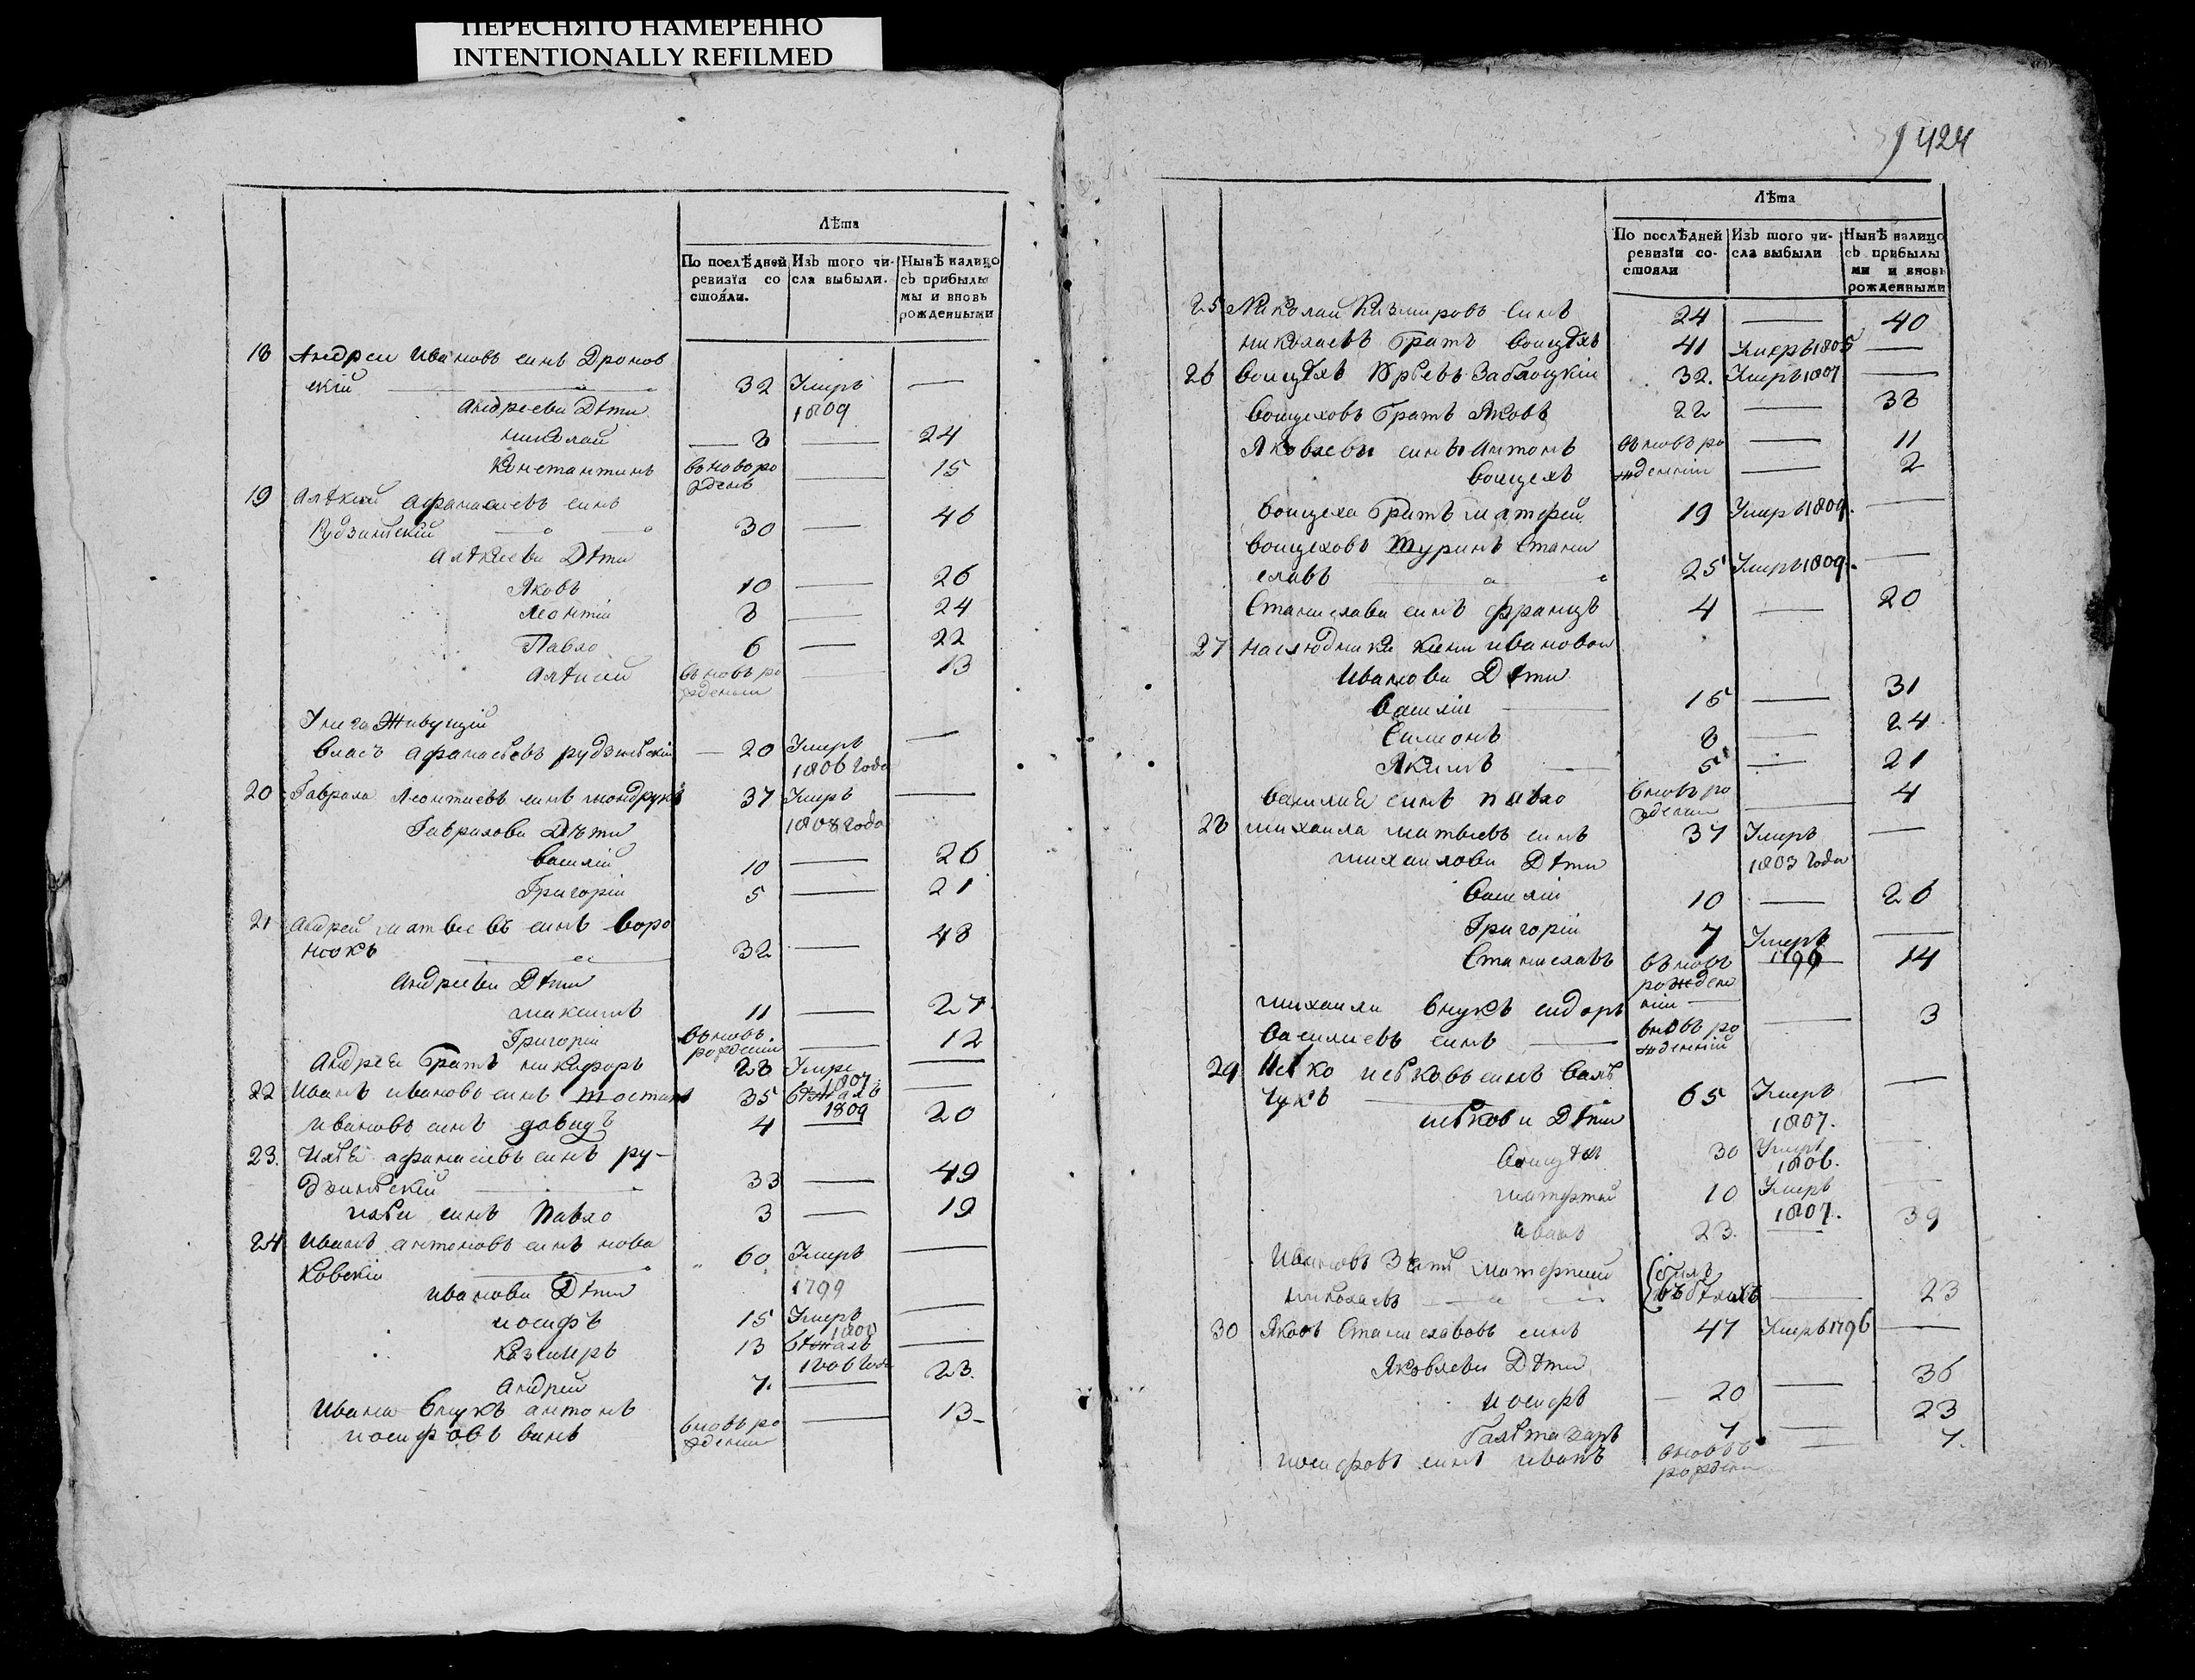 ПЕРЕСНЯТО НАМЕРЕННО
INTENTIONALLY REFILMED
Лѣта
По послѣдней ревизїи состояли.
Изъ того числа выбыли.
Нынѣ налицо съ прибылыми и вновь рожденными
18 Андреи Ивановъ синъ Дронов
скій 32 Умеръ —
1809
Андрееви Дѣти
николай — 8 — 24
Константинъ въново ро — 15
жденъ
19 Алѣкъсий Афанасиевъ синъ
Рудзинский 30 — 46
Алѣксееви Дѣти
Яковъ 10 — 26
Леонтіи 8 — 24
Павло 6 — 22
Алѣксий въновъ ро — 13
жденіи
У него Живущій
Власъ Афанасьевъ рудзинскій — 20 Умеръ —
1806 Года
20 Гаврила Леонтиевъ синъ 37 Умеръ —
1808 Года
Гаврилови Дѣти
Василій 10 — 26
Григоріи 5 — 21
21 Андрей матвеевъ синъ воро
нюкъ 32 — 48
Андрееви Дѣти
максимъ 11 — 27.
Григоріи въновъ — 12
рожденіи
Андрея братъ никифоръ 28 Умре —
1807.
22 Иванъ ивановъ синъ 35 —
1809
ивановъ синъ давидъ 4 — 20
23. Илья афанасиевъ синъ ру-
дзинскій 33 — 49
ильи синъ Павло 3 — 19
24 Иванъ антоновъ синъ нова
ковскіи 60 Умеръ —
1799
иванови Дѣти
иосифъ 15 Умеръ —
1800
Казимеръ 13 —
1806 Года
Андрей 7. — 23.
Ивана внукъ антонъ
иосифовъ синъ вновъ ро — 13-
жденіи
424
Лѣта
По послѣдней ревизїи состояли
Изъ того числа выбыли
Нынѣ налицо съ прибылыми и вновь рожденными
25 Николай Казмировъ синъ 24 — 40
николаевъ братъ воицѣхъ 41 Умеръ 1805 —
26 воицѣхъ Юрьевъ Заблоцкіи 32. Умеръ 1807 —
воицеховъ братъ Яковъ 22 — 38
Яковлевы сини Антонъ въновъ ро — 11
воицехъ жденніи — 2
воицеха братъ матфей 19 Умеръ 1809. —
воицеховъ Шуринъ Стани
славъ 25 Умеръ 1809. —
Станислава синъ францъ 4 — 20
27 ивановои
Иванови Дѣти
василіи 15 — 31
Симионъ 8 — 24
Якимъ 5 — 21
василия синъ павло вновъ ро — 4
жденіи
28 михаила матвиевъ синъ 37 Умеръ —
михаилови Дѣти 1803 Года
василіи 10 — 26
Григоріи 7 Умеръ —
1796
Станиславъ въновъ — 14
рожден
ніи
михаили внукъ сидоръ
василиевъ синъ вновъ ро — 3
жденній
29
чукъ 65 Умеръ —
1807.
Дѣти
30 Умеръ —
1806.
матфѣй 10 Умеръ —
1807.
иванъ 23. — 39
Ивановъ Зять матфией
николаевъ — 23
30 Яковъ Станиславовъ синъ 47 Умеръ 1796 —
Яковлеви Дѣти
иосифъ — 20 — 36
балтазаръ 7 — 23
иосифовъ синъ иванъ вновъ — 7.
рождени